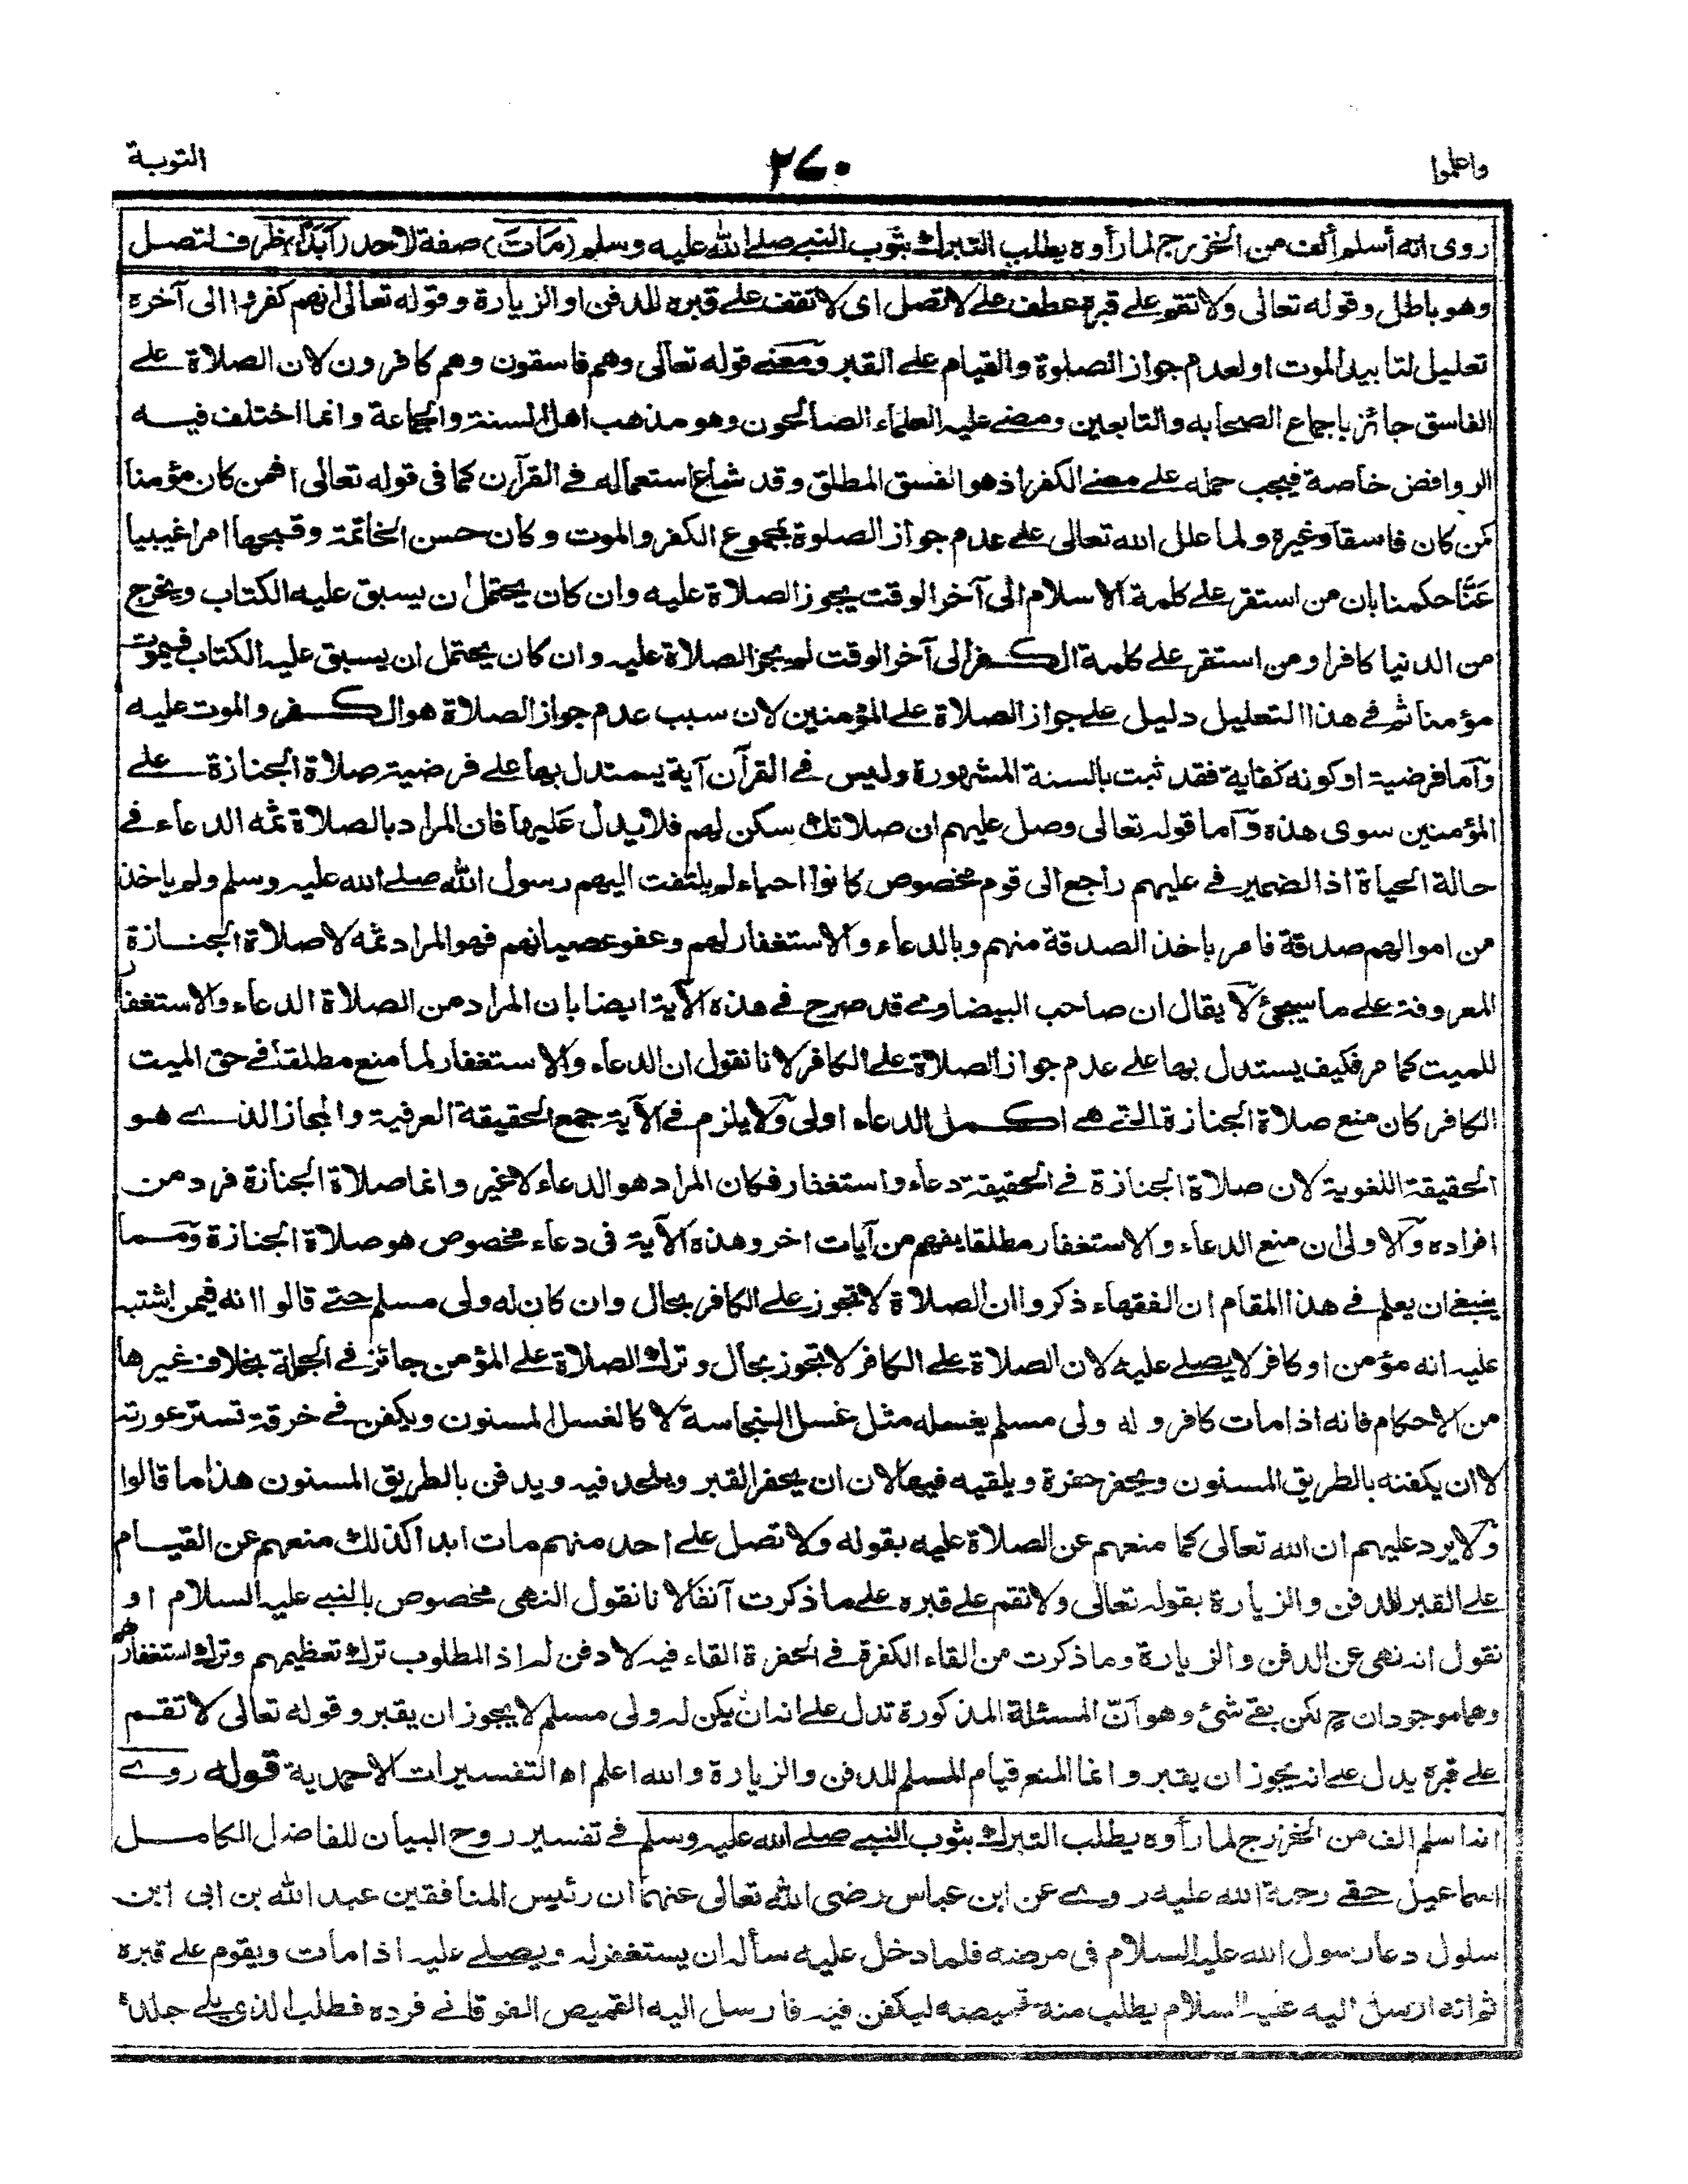 واعلموا
٢٧٠
التوبة
روى انه أسلم ألف من الخزرج لما رأوه يطلب التبرك بثوب النبي صلے الله عليه وسلم (مَاتَ) صفة لاحد (أَبَدًا) ظرف لتصل
وهو باطل وقوله تعالى ولا تقم علے قبره عطف علے لا تصل اى لا تقف علے قبره للدفن او الزيارة وقوله تعالى انهم كفروا الى آخره
تعليل لتأبيد الموت او لعدم جواز الصلوة والقيام علے القبر ومعنے قوله تعالى وهم فاسقون وهم كافرون لان الصلاة علے
الفاسق جائز باجماع الصحابه والتابعين ومضے عليه العلماء الصالحون وهو مذهب اهل السنة والجماعة وانما اختلف فيه
الروافض خاصة فيجب حمله علے معنے الكفر اذ هو الفسق المطلق وقد شاع استعماله فے القرآن كما فى قوله تعالى افمن كان مؤمنا
كمن كان فاسقا وغيره ولما علل الله تعالى علے عدم جواز الصلوة بمجموع الكفر والموت وكان حسن الخاتمة وقبحها امرا غيبيا
عَنَّا حكمنا بان من استقر علے كلمة الاسلام الى آخر الوقت يجوز الصلاة عليه وان كان يحتمل ان يسبق عليه الكتاب ويخرج
من الدنيا كافرا ومن استقر علے كلمة الكفر الى آخر الوقت لم يجز الصلاة عليه وان كان يحتمل ان يسبق عليه الكتاب فيموت
مؤمنا ثم فے هذا التعليل دليل علے جواز الصلاة علے المؤمنين لان سبب عدم جواز الصلاة هو الكفر والموت عليه
وأما فرضية او كونه كفاية فقد ثبت بالسنة المشهورة وليس فے القرآن آية يستدل بها علے فرضية صلاة الجنازة علے
المؤمنين سوى هذه وأما قوله تعالى وصل عليهم ان صلاتك سكن لهم فلا يدل عليها فان المراد بالصلاة ثمه الدعاء فے
حالة الحياة اذ الضمير فے عليهم راجع الى قوم مخصوص كانوا احياء لم يلتفت اليهم رسول الله صلے الله عليه وسلم ولم ياخذ
من اموالهم صدقة فامر باخذ الصدقة منهم وبالدعاء والاستغفار لهم وعفو عصيانهم فهو المراد ثمه لا صلاة الجنازة
المعروفة علے ما سيجئ لا يقال ان صاحب البيضاوے قد صرح فے هذه الآية ايضا بان المراد من الصلاة الدعاء والاستغفار
للميت كما مر فكيف يستدل بها علے عدم جواز الصلاة علے الكافر لانا نقول ان الدعاء والاستغفار لما منع مطلقا فے حق الميت
الكافر كان منع صلاة الجنازة التے هے اكمل الدعاء اولى ولا يلزم فے الآية جمع الحقيقة العرفية والمجاز الذے هو
الحقيقة اللغوية لان صلاة الجنازة فے الحقيقة دعاء واستغفار فكان المراد هو الدعاء لا غير وانما صلاة الجنازة فرد من
افراده والاولى ان منع الدعاء والاستغفار مطلقا يفهم من آيات اخر وهذه الآية فى دعاء مخصوص هو صلاة الجنازة ومما
ينبغے ان يعلم فے هذا المقام ان الفقهاء ذكروا ان الصلاة لا تجوز علے الكافر بحال وان كان له ولى مسلم حتے قالوا انه فيمن اشتبه
عليه انه مؤمن او كافر لا يصلے عليه لان الصلاة علے الكافر لا تجوز بحال وترك الصلاة علے المؤمن جائز فے الجملة بخلاف غيرها
من الاحكام فانه اذا مات كافر وله ولى مسلم يغسله مثل غسل النجاسة لا كالغسل المسنون ويكفن فے خرقة تستر عورته
لا ان يكفنه بالطريق المسنون ويحفر حفرة ويلقيه فيها لا ان يحفر القبر ويلحد فيه ويدفن بالطريق المسنون هذا ما قالوا
ولا يرد عليهم ان الله تعالى كما منعهم عن الصلاة عليه بقوله ولا تصل علے احد منهم مات ابدا كذلك منعهم عن القيام
علے القبر للدفن والزيارة بقوله تعالى ولا تقم علے قبره علے ما ذكرت آنفا لانا نقول النهى مخصوص بالنبے عليه السلام او
نقول انه نهى عن الدفن والزيارة وما ذكرت من القاء الكفرة فے الحفرة القاء فيه لا دفن له اذ المطلوب ترك تعظيمهم وترك استغفارهم
وهما موجودان ح لكن بقے شئ وهو أنّ المسئلة المذكورة تدل علے انه ان يكن له ولى مسلم لا يجوز ان يقبر وقوله تعالى لا تقم
علے قبره يدل علے انه يجوز ان يقبر وانما المنع قيام المسلم للدفن والزيارة والله اعلم اه التفسيرات الاحمدية قوله روے
انه اسلم الف من الخزرج لما رأوه يطلب التبرك بثوب النبے صلے الله عليه وسلم فے تفسير روح البيان للفاضل الكامل
اسماعيل حقے رحمة الله عليه روے عن ابن عباس رضى الله تعالى عنهما ان رئيس المنافقين عبد الله بن ابى ابن
سلول دعا رسول الله عليه السلام فى مرضه فلما دخل عليه سأله ان يستغفر له ويصلے عليه اذا مات ويقوم علے قبره
ثم انه ارسل اليه عليه السلام يطلب منه قميصه ليكفن فيه فارسل اليه القميص الفوقانے فرده فطلب الذى يلے جلده